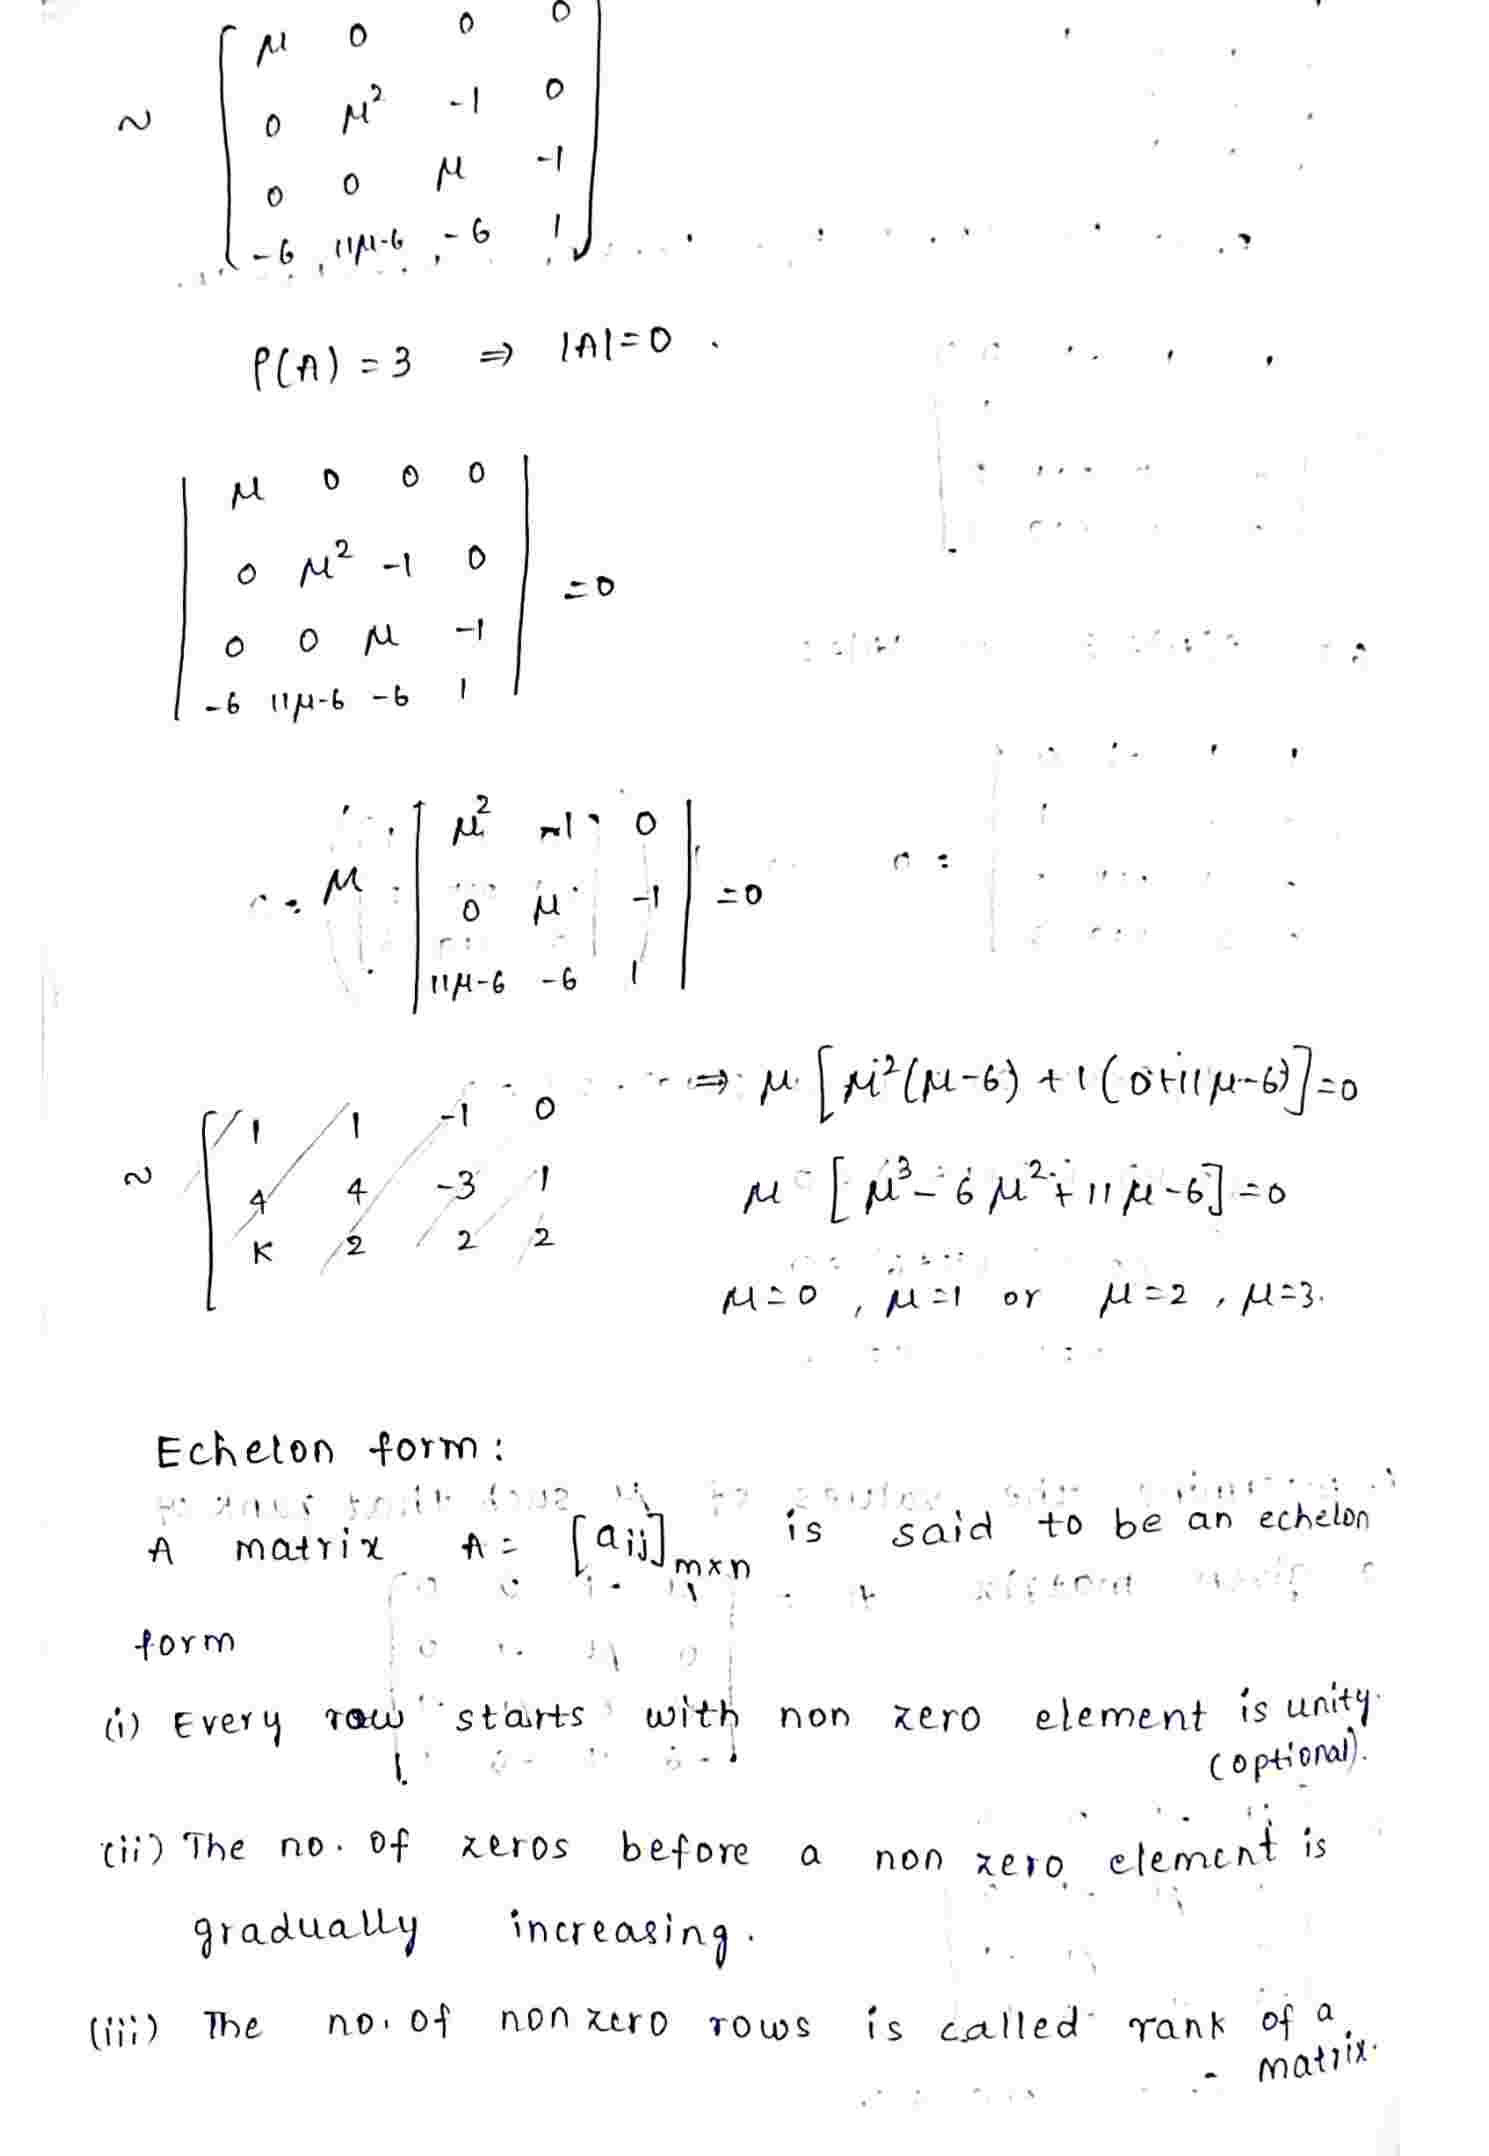 ~ [ μ 0 0 0
0 μ² -1 0
0 0 μ -1
-6 11μ-6 -6 1 ]
P(A) = 3 ⇒ |A|=0 .
| μ 0 0 0
0 μ² -1 0
0 0 μ -1
-6 11μ-6 -6 1 | =0
μ | μ² -1 0
0 μ -1
11μ-6 -6 1 | =0
⇒ μ [μ²(μ-6) + 1(0+11μ-6)]=0
~ [ 1 1 -1 0
4 4 -3 1
K 2 2 2
μ [μ³-6μ²+11μ-6]=0
μ=0 , μ=1 or μ=2 , μ=3.
Echelon form:
A matrix A= [aij]m×n is said to be an echelon
form
(i) Every row starts with non zero element is unity.
(optional).
(ii) The no. of zeros before a non zero element is
gradually increasing.
(iii) The no. of non zero rows is called rank of a
matrix.